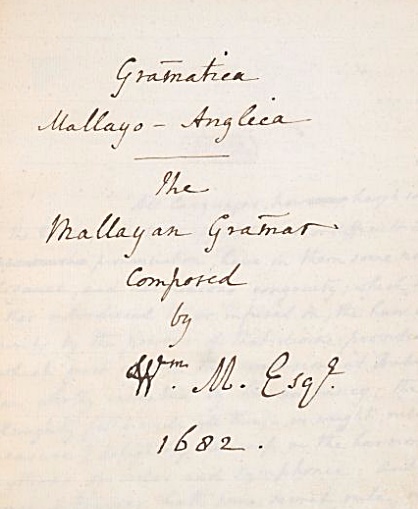 Gram̄atica
Mallayo - Anglica
The
Mallayan Gram̄ar
Composed
by
Wᵐ. M. Esqʳ.
1682.